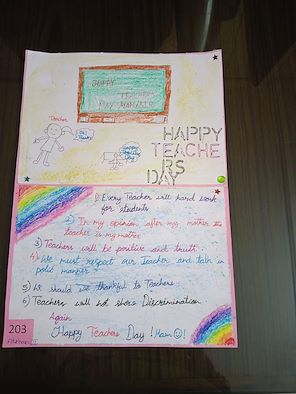 HAPPY
TEACHERS
DAY
Teacher
Happy
Teachers
Day
HAPPY
TEACHE
RS
DAY
1) Every Teacher will hard work
for students
2) In my opinion after my mother the
teacher is my mother
3) Teachers will be positive and truth.
4) We must respect our Teacher and talk in
manner
5) We should be thankful to Teachers
6) Teachers will not show Discrimination
Again
Happy Teachers Day ! Mam
203